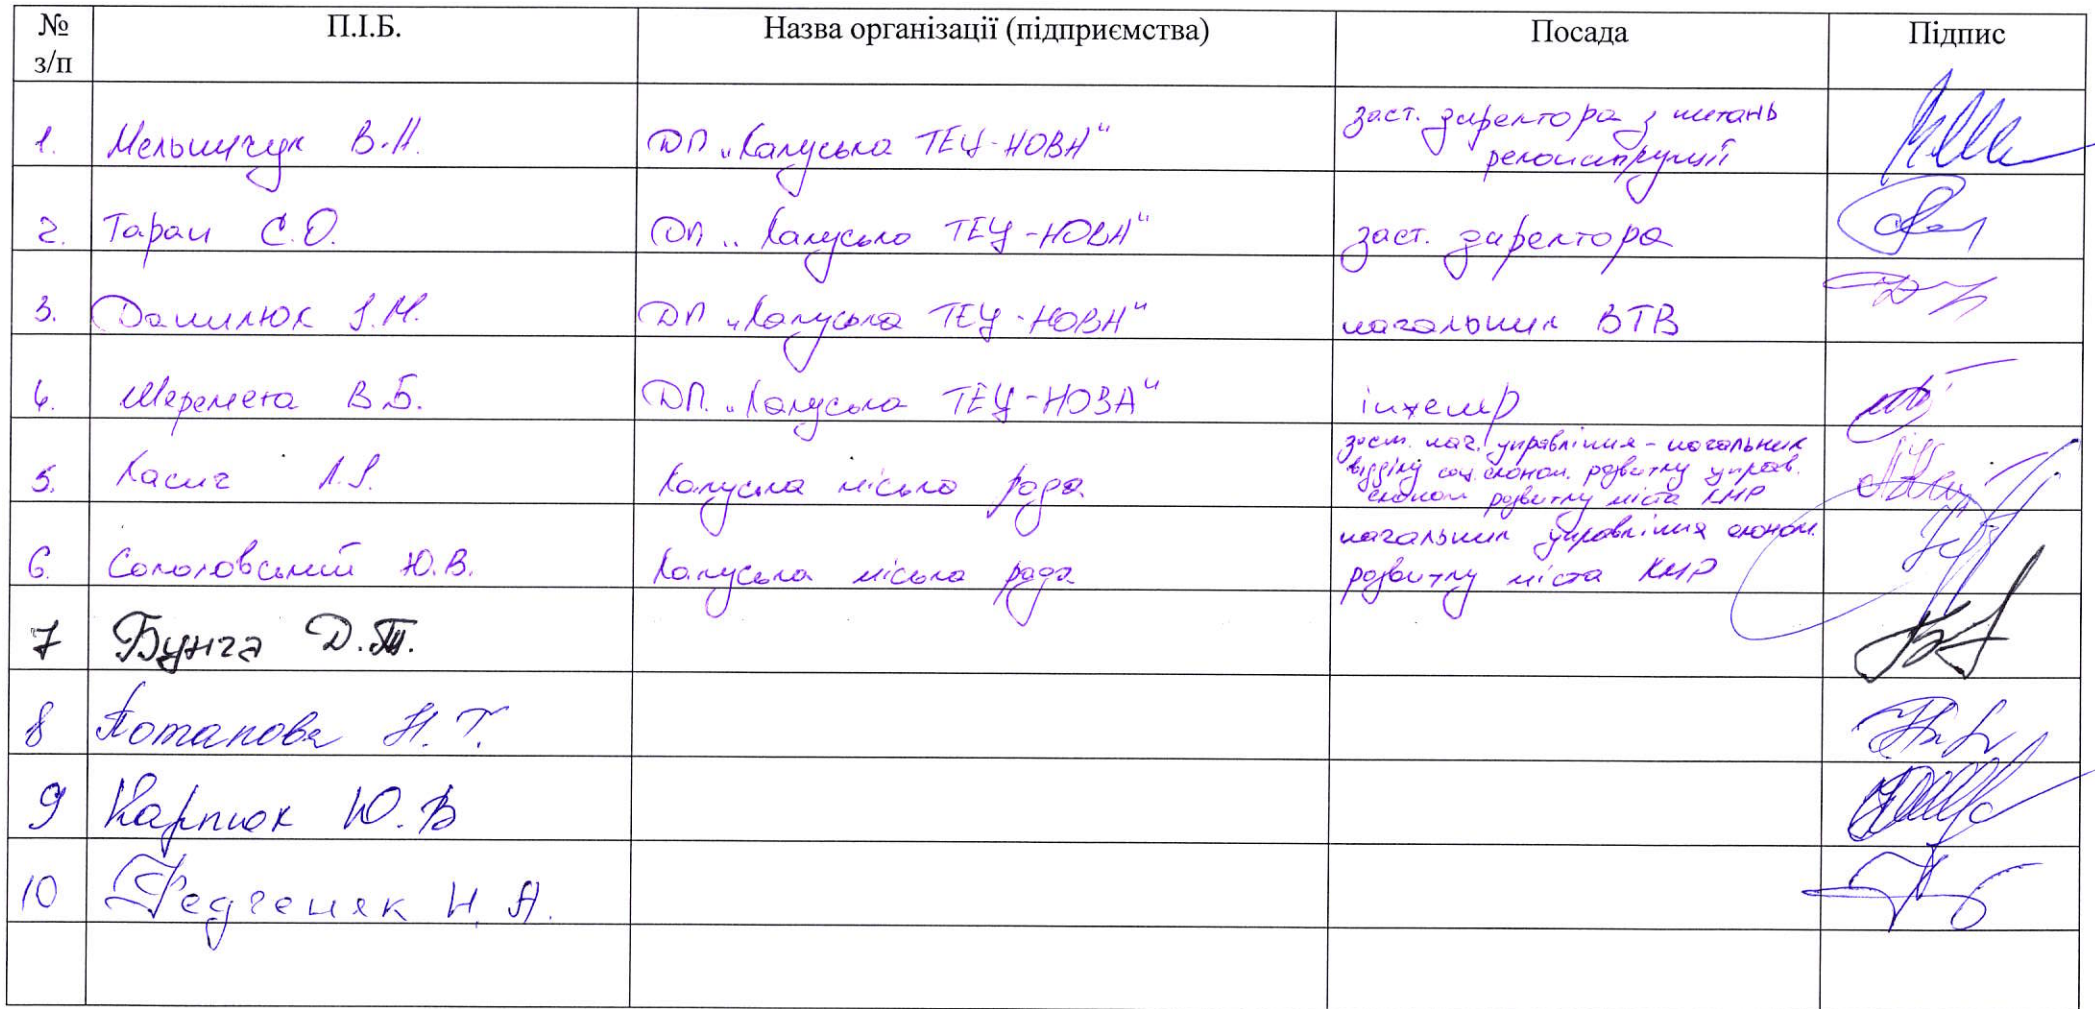 № з/п П.І.Б. Назва організації (підприємства) Посада Підпис
1. Мельничук В.А. ДП „Калуська ТЕЦ-НОВА" заст. директора з питань
реконструкції
2. Таран С.О. ДП „Калуська ТЕЦ-НОВА" заст. директора
3. Данилюк І.М. ДП „Калуська ТЕЦ-НОВА" начальник ВТВ
4. Шеремета В.Б. ДП. „Калуська ТЕЦ-НОВА" інженер
5. Касич Л.І. Калуська міська рада заст. нач. управління - начальник
відділу соц. економ. розвитку управ.
економ розвитку міста КМР
6. Соколовський Ю.В. Калуська міська рада начальник управління економ.
розвитку міста КМР
7 Бунга Д.Т.
8 Потапова Н.Т.
9 Карпюк Ю.В
10 Федченяк Н.А.